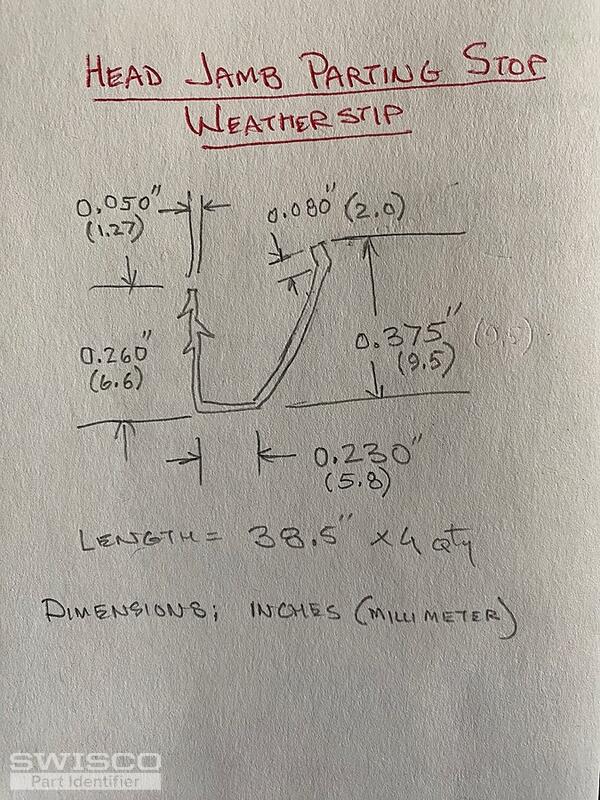 HEAD JAMB PARTING STOP
WEATHERSTIP
0.050"
(1.27)
0.080" (2.0)
0.260"
(6.6)
0.375" (9.5)
(9.5)
0.230"
(5.8)
LENGTH = 38.5" x 4 qty
DIMENSIONS; INCHES (MILLIMETER)
SWISCO
Part Identifier